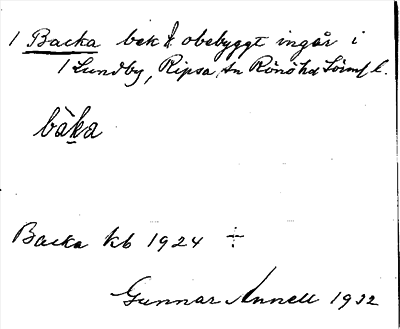 1 Backa bek obebyggt ingår i
1 Lundby, Ripsa sn Rönö hd Sörml l.
bàka
Backa kb 1924 ÷
Gunnar Annell 1932